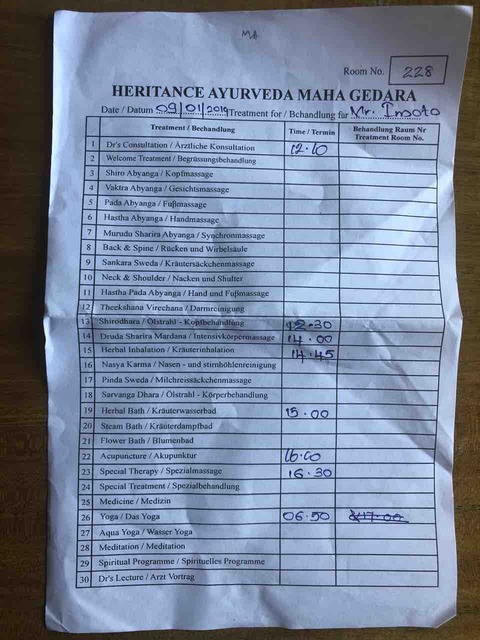 MA
Room No. 228
HERITANCE AYURVEDA MAHA GEDARA
Date / Datum 09/01/2019 Treatment for / Behandlung für Mr. Insoto
Treatment / Bechandlung Time / Termin Behandlung Raum Nr Treatment Room No.
1 Dr's Consultation / Ärztliche Konsultation 12.10
2 Welcome Treatment / Begrüssungsbehandlung
3 Shiro Abyanga / Kopfmassage
4 Vaktra Abyanga / Gesichtsmassage
5 Pada Abyanga / Fußmassage
6 Hastha Abyanga / Handmassage
7 Murudu Sharira Abyanga / Synchronmassage
8 Back & Spine / Rücken und Wirbelsäule
9 Sankara Sweda / Kräutersäckchenmassage
10 Neck & Shoulder / Nacken und Shulter
11 Hastha Pada Abyanga / Hand und Fußmassage
12 Theekshana Virechana / Darmreinigung
13 Shirodhara / Ölstrahl - Kopfbehandlung 12.30
14 Druda Sharira Mardana / Intensivkörpermassage 14.00
15 Herbal Inhalation / Kräuterinhalation 14.45
16 Nasya Karma / Nasen - und stimhöhlenreinigung
17 Pinda Sweda / Milchreissäckchenmassage
18 Sarvanga Dhara / Ölstrahl - Körperbehandlung
19 Herbal Bath / Kräuterwasserbad 15.00
20 Steam Bath / Kräuterdampfbad
21 Flower Bath / Blumenbad
22 Acupuncture / Akupunktur 16.00
23 Special Therapy / Spezialmassage 16.30
24 Special Treatment / Spezialbehandlung
25 Medicine / Medizin
26 Yoga / Das Yoga 06.50 &17.00
27 Aqua Yoga / Wasser Yoga
28 Meditation / Meditation
29 Spiritual Programme / Spirituelles Programme
30 Dr's Lecture / Arzt Vortrag